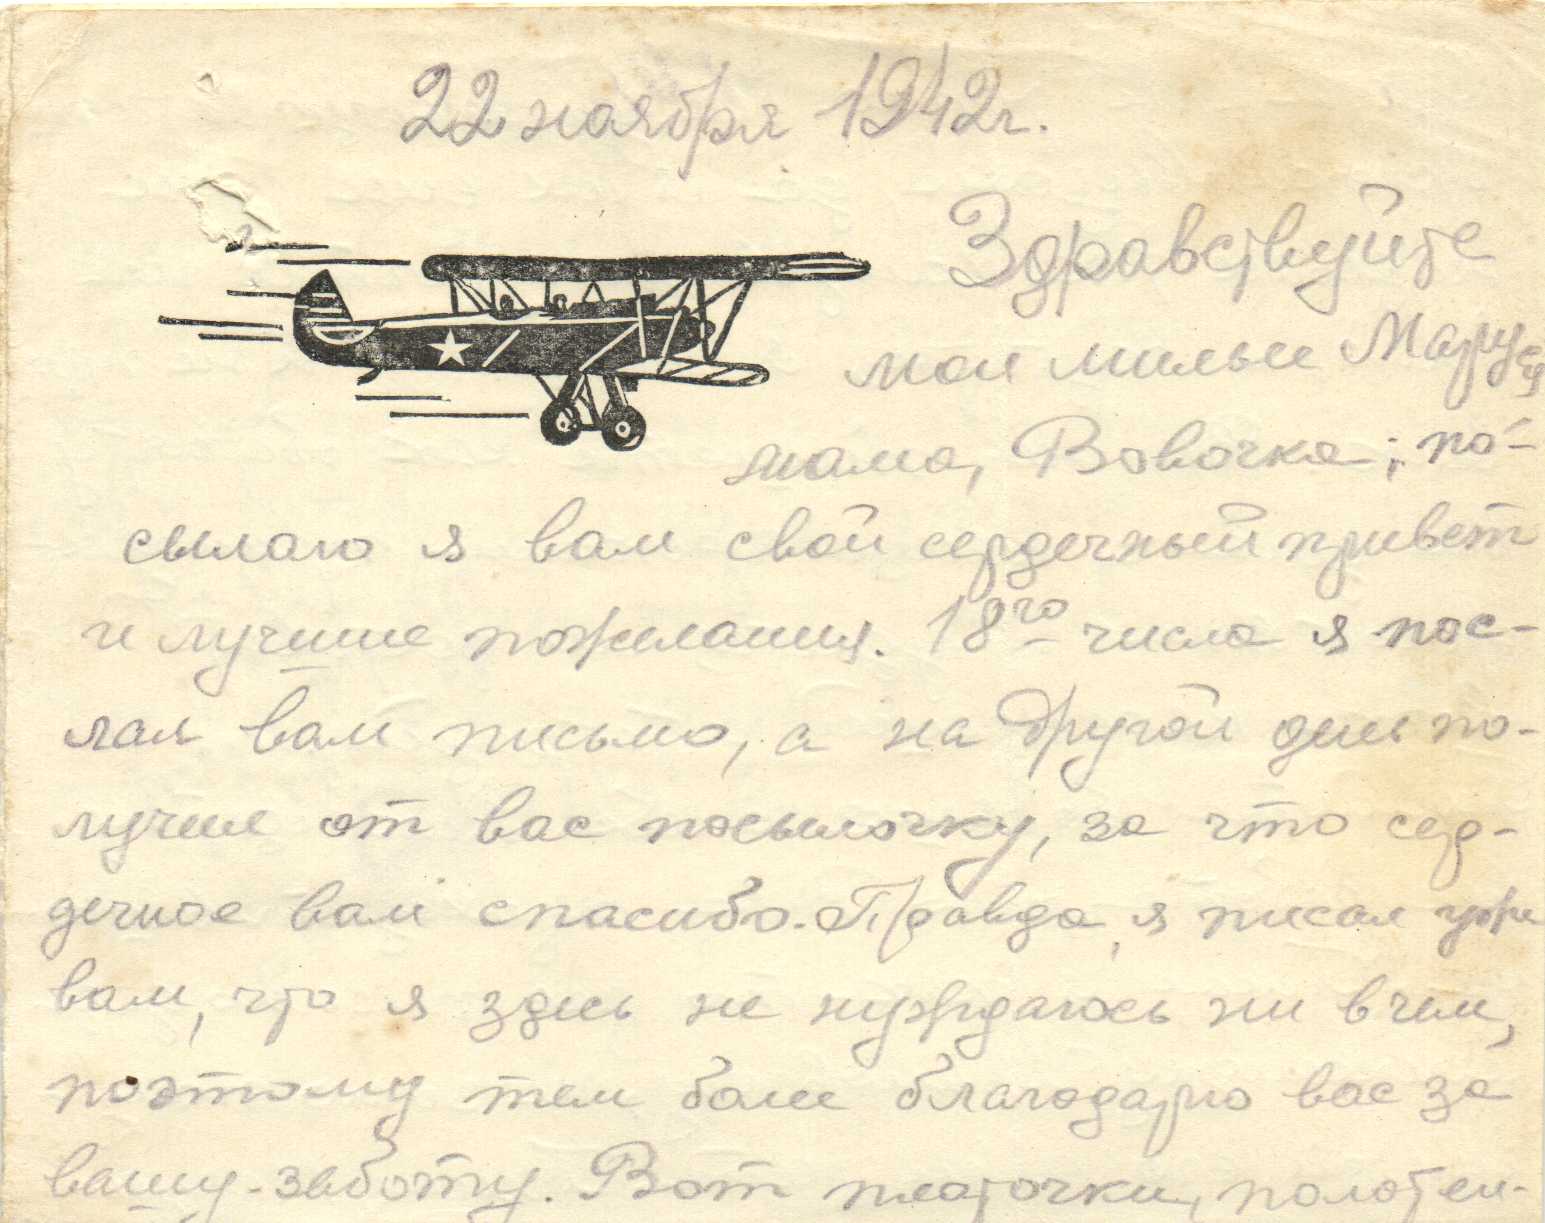 22 ноября 1942г.
Здравствуйте
мои милые Маруся
мама, Вовочка; по-
сылаю я вам свой сердечный привет
и лучшие пожелания. 18го числа я пос-
лал вам письмо, а на другой день по-
лучил от вас посылочку, за что сер-
дечное вам спасибо. Правда, я писал уже
вам, что я здесь не нуждаюсь ни в чем,
поэтому тем боле благодарю вас за
вашу заботу. Вот платочки, полотен-